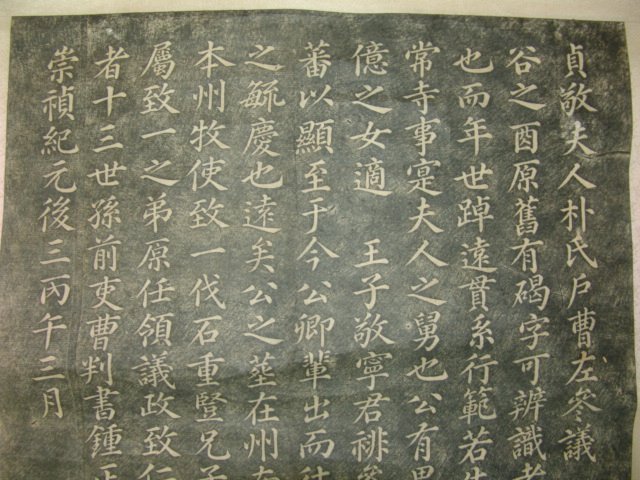 貞敬夫人朴氏戶曹左參議
谷之酉原舊有碣字可辨識者
也而年世踔遠貫系行範若
常寺事寔夫人之舅也公有男
億之女適 王子敬寧君裶
蕃以顯至于今公卿輩出而
之毓慶也遠矣公之墓在州
本州牧使致一伐石重豎兄子
屬致一之弟原任領議政致仁
者十三世孫前吏曹判書鍾正
崇禎紀元後三丙午三月